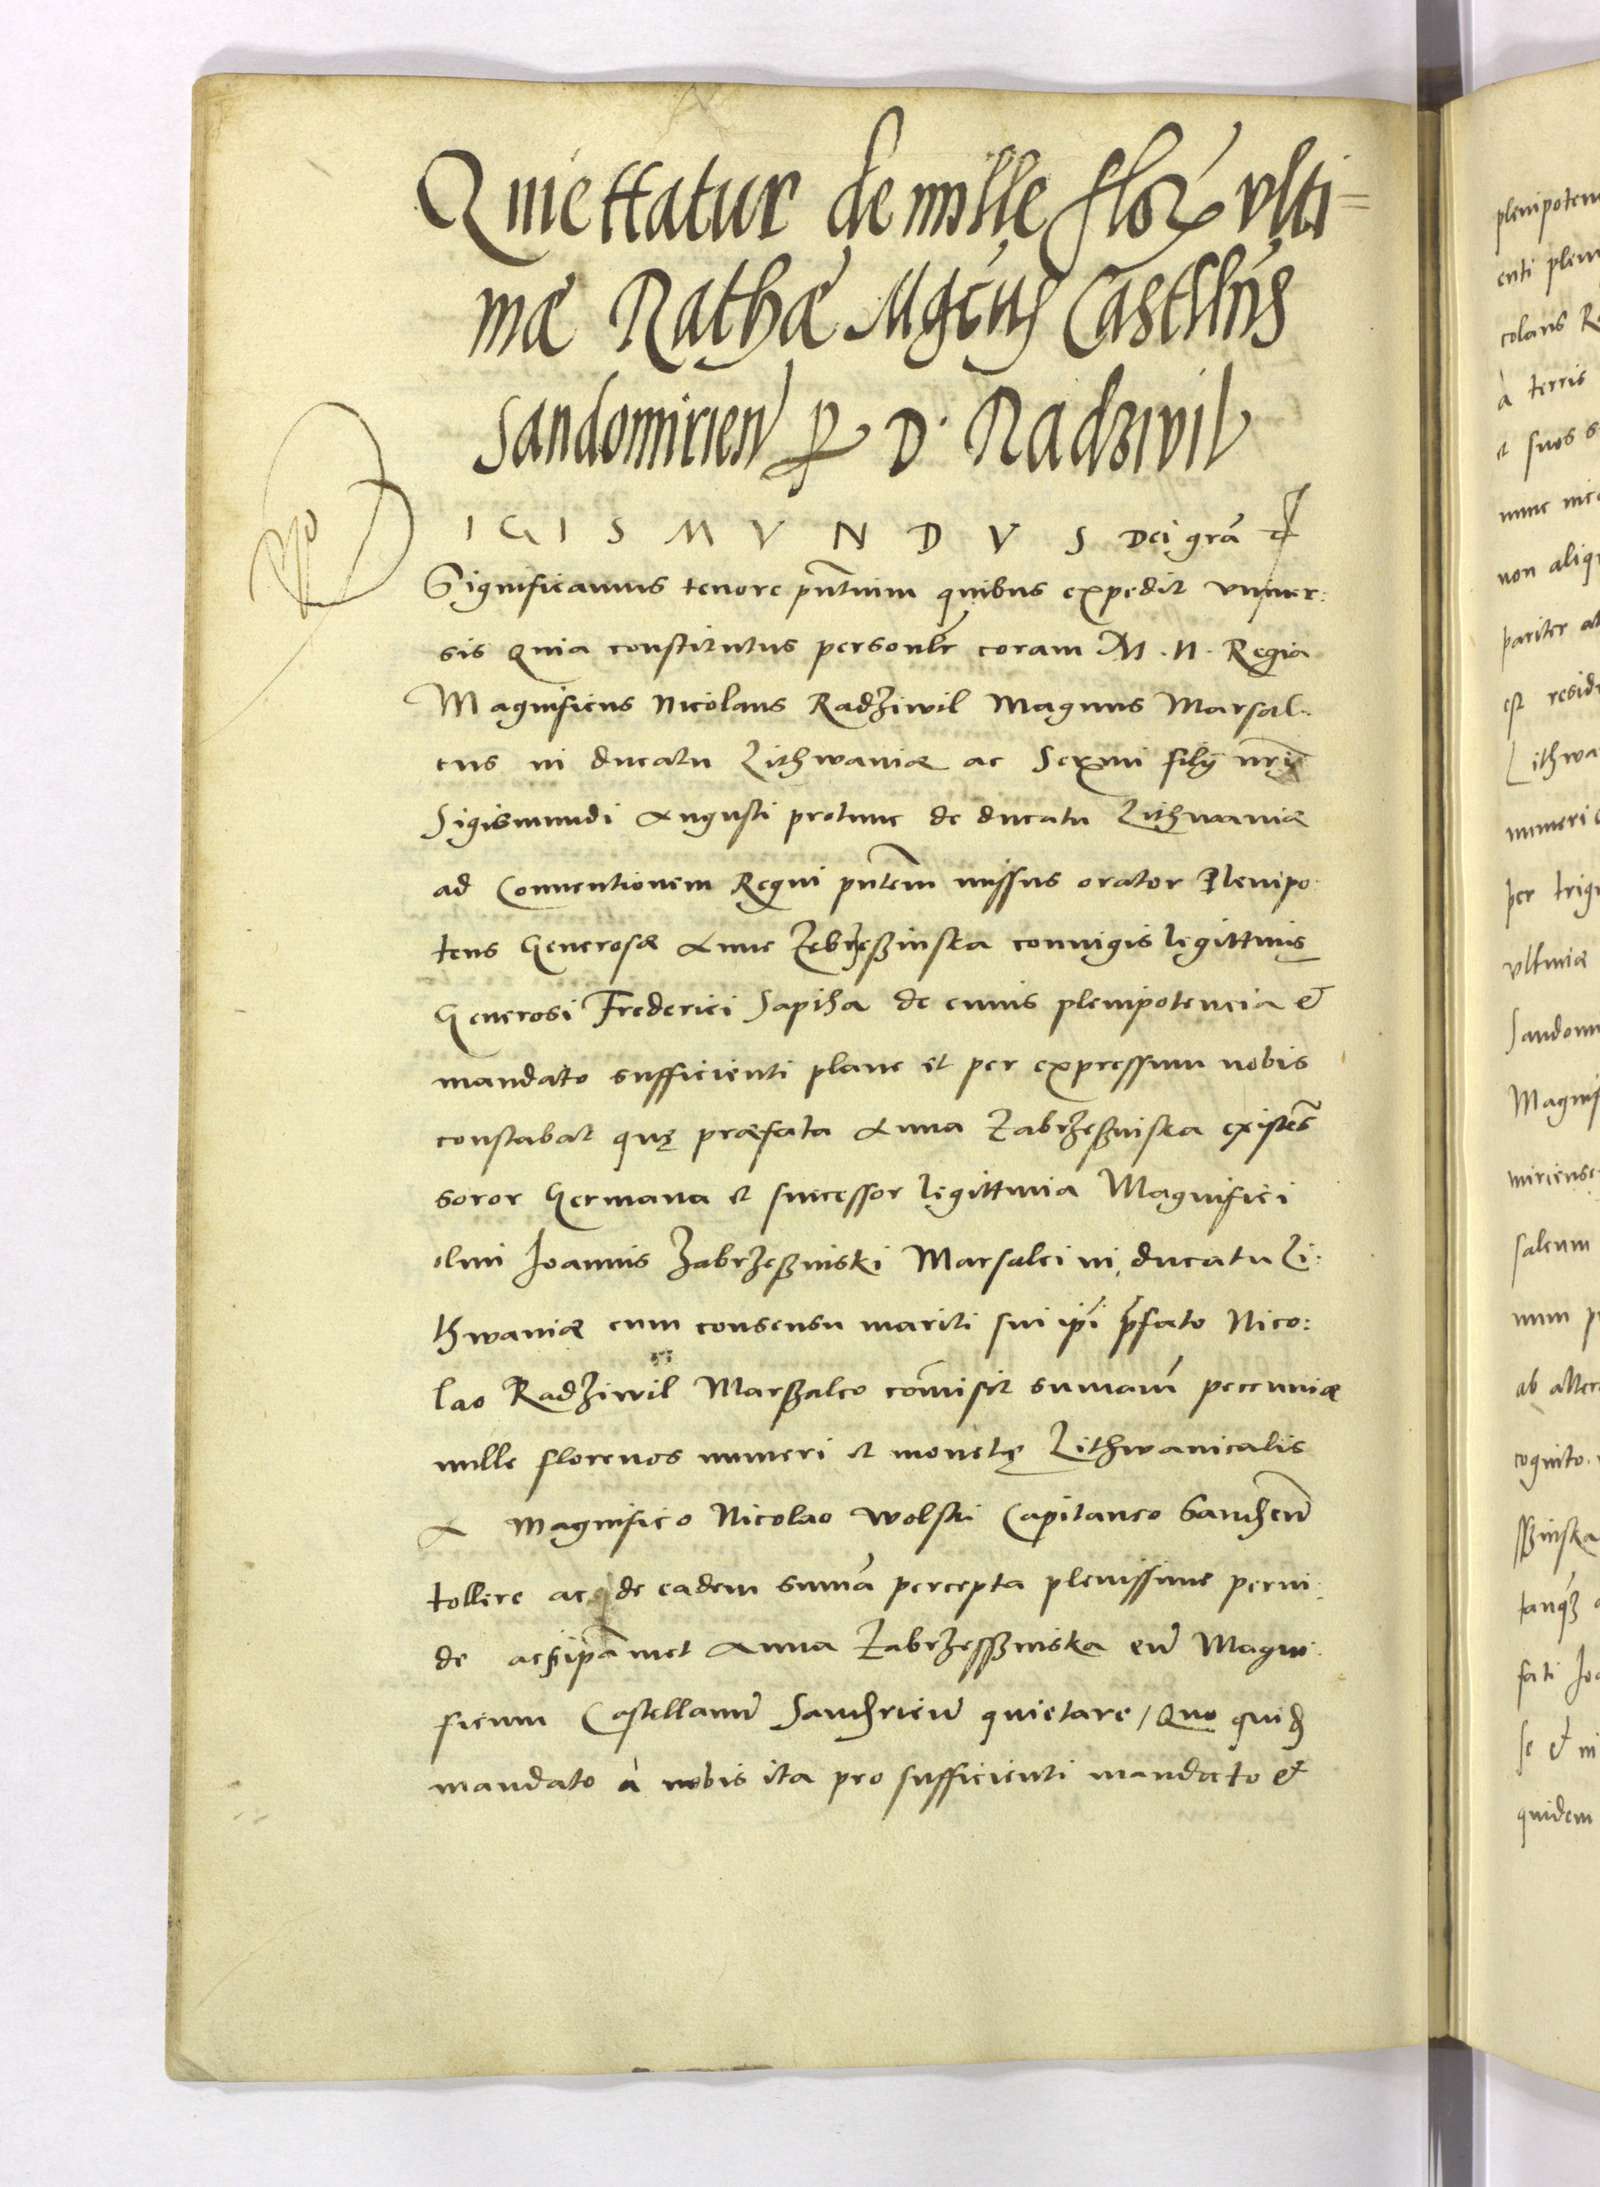 Quiettatur de mille flor ulti=
mæ Rathæ Mgcus Castllns
Sandomirien p D. Radzivil
IGISMVNDVS Dei grã &
Significamus tenore pñtium quibus expedit vniuer:
sis Quia constitutus personlr coram M. N. Regia
Magnificus Nicolaus Radziwil Magnus Marsal:
cus in ducatu Lithwaniæ ac Sermi filij nri
Sigismundi Augusti protunc de ducatu Lithwaniæ
ad Conuentionem Regni pñtem missus orator Plenipo
tens Generosæ Anne Zebrzeßinska coniugis legittimę
Generosi Frederici Sapiha de cuius plenipotencia &
mandato sufficienti plane et per expressum nobis
constabat quę præfata Anna Zabrzeßinska existẽs
soror Germana et successor legittima Magnifici
olim Joannis Zabrzeßinski Marsalci in ducatu Li:
thwaniæ cum consensu mariti sui ipi pfato Nico:
lao Radziwil Marßalco comisit sumam pecuniæ
mille florenos numeri et monetę Lithwanicalis
A Magnifico Nicolao Wolski Capitaneo
tollere ac de eadem suma percepta plenissime perin:
de ac ipamet Anna Zabrzeßinska eu Magni:
ficum Castellanu quietare / Quo quid
mandato à nobis ita pro sufficienti mandato &
plenipoten
enti plen
colaus R
à terris
et suos s
nunc
non aliq
pariter
est resid
Lithwa
numeri
per trig
ultimæ
Sandom
Magnif
miriens
salcum
num p
ab alter
cognito
ßinska
tanq
fati Jo
se & in
quidem